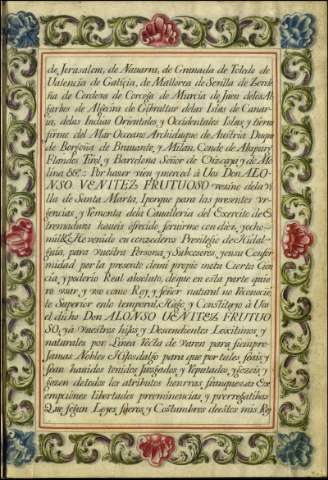 de Jerusalem, de Navarra, de Granada de Toledo de
Valencia de Galicia, de Mallorca de Sevilla de Zerde
ña de Cordova de Corcega de Murcia de Jaen delos Al
jarbes de Algecira de Gibraltar delas Islas de Cana
ria, delas Indias Orientales y Occidentales Islas, y tierra
firme del Mar Oceano Archiduque de Austria Duque
de Borgoña de Bravante, y Milan, Conde de Abspurg
Flandes Tirol, y Barcelona Señor de Vizcaya y de Mo
lina &c. Por hazer vien y merced à Vos Don ALO
NSO VENITEZ FRUTUOSO vezino dela Vi
lla de Santa Marta, y porque para las presentes vr
gencias, y Remonta dela Cavalleria del Exercito de E
stremadura haveis ofrecido servirme con diez, y ocho
mil He venido en concederos Previlejio de Hidal
guia, para vuestra Persona, y Subcesores, y en su Confor
midad por la presente demi propio motu Cierta Cien
cia, y poderio Real absoluto, deque en esta parte quie
ro vsar, y vso como Rey, y señor natural no Reconocie
te Superior enlo temporal, Hago, y Constituyo à Vos
el dicho Don ALONSO VENITEZ FRUTUO
SO, yà vuestros hijos, y Descendientes Lexitimos, y
naturales por Linea recta de Varon para siempre
Jamas Nobles Hijosdalgo para que por tales seais, y
sean havidos tenidos juzgados, y Reputados, y gozeis, y
gozen detodos los atributos honrras, franquezas Ex
empciones libertades preeminencias, y prerrogatibas
Que segun Leyes fueros, y Costumbres destos mis Rey